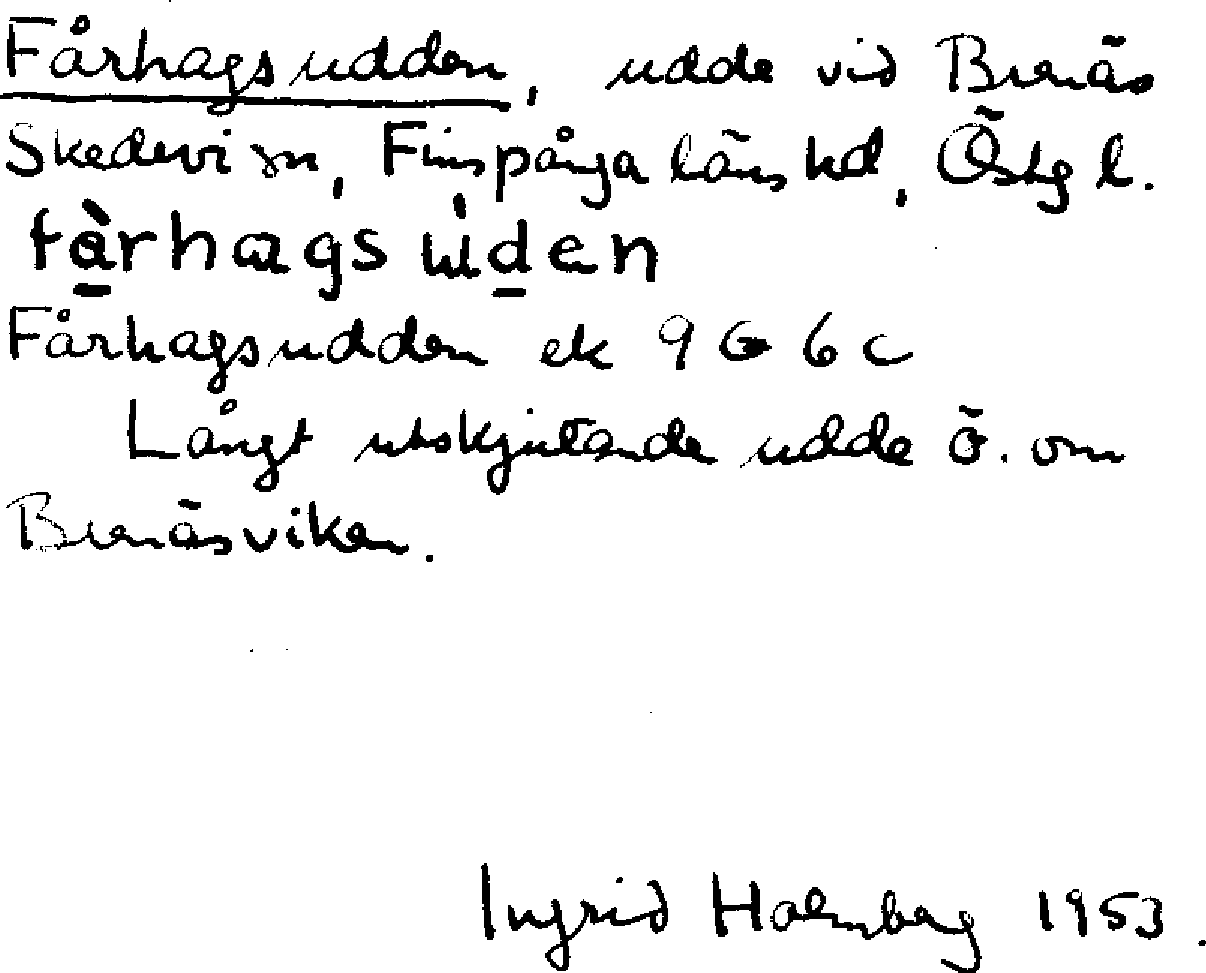 Fårhagsudden, udde vid Brenäs
Skedevi sn, Finspånga läns hd, Östg l.
fàrhags ùden
Fårhagsudden ek 9 G 6 c
Långt utskjutande udde ö. om
Brenäsviken.
Ingrid Holmberg 1953.